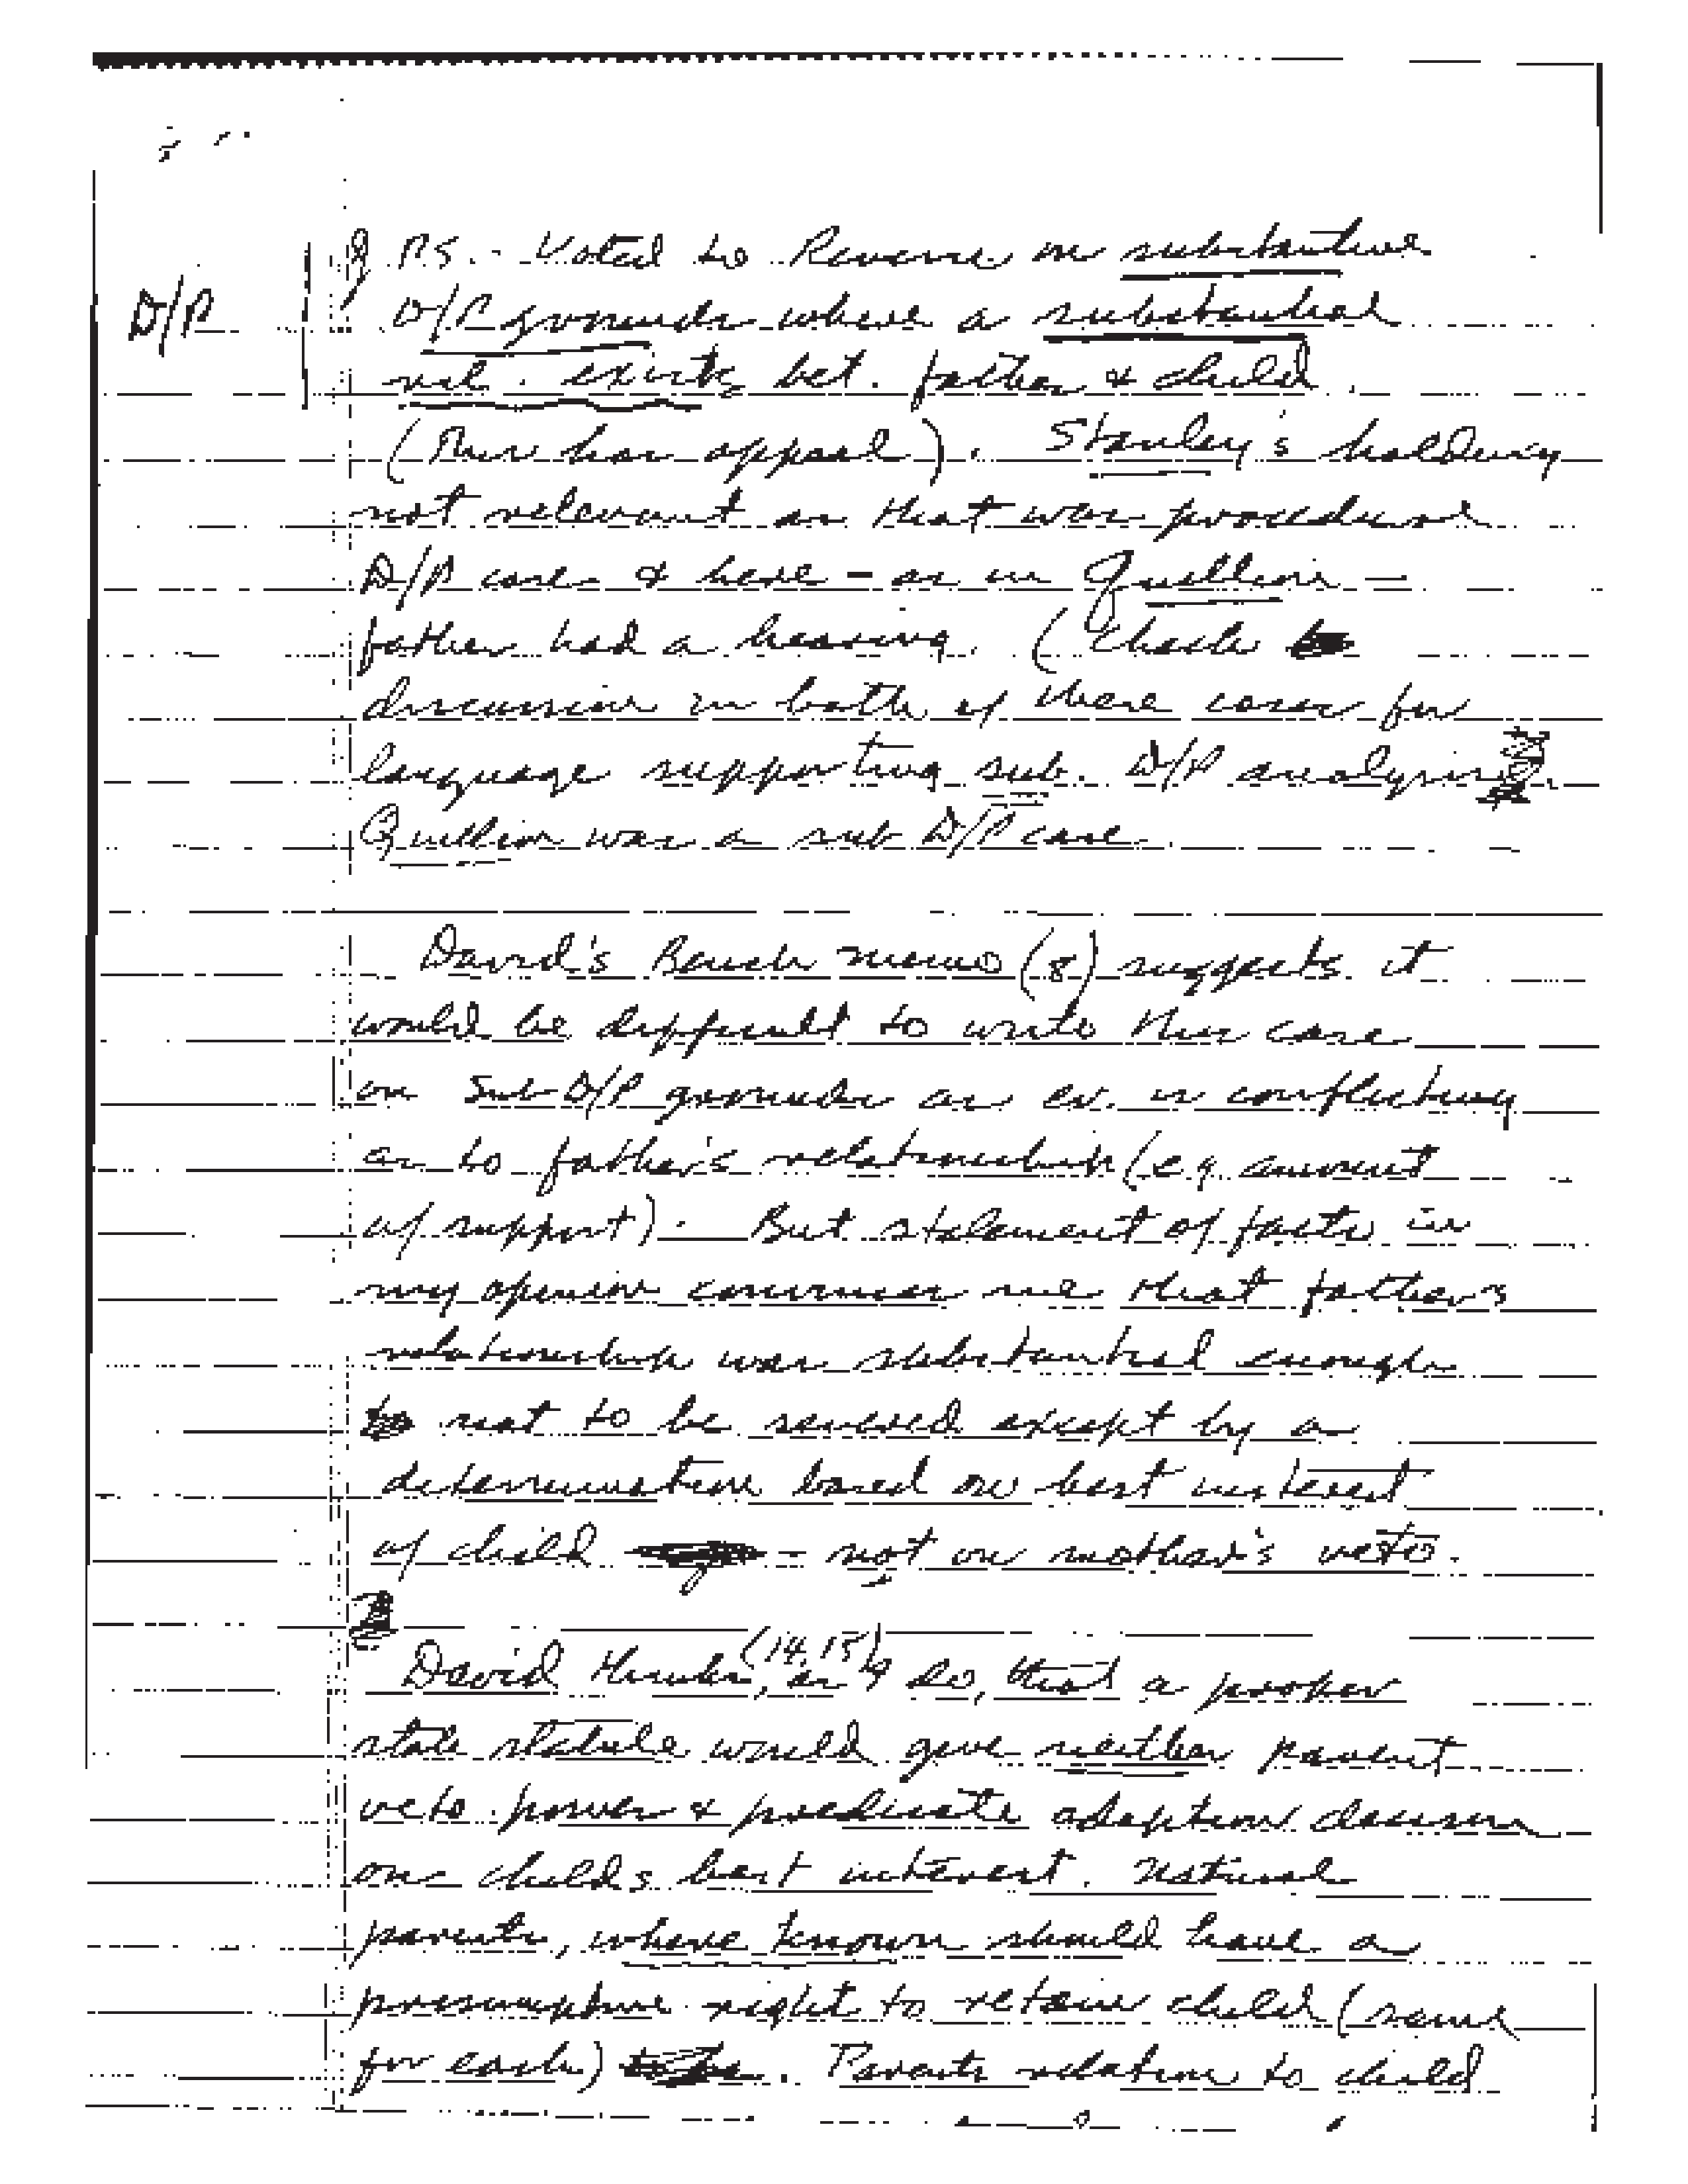 J. P.S. - Voted to Reverse on substantive
D/P D/P grounds where a substantial
rel. exists bet. father & child.
(This has appeal). Stanley's holding
not relevant as that was procedural
D/P case & here - as in Quilloin -
father had a hearing. (Check
discussion in both of these cases for
language supporting sub. D/P analysis
Quilloin was a sub D/P case.
David's Bench memo (8) suggests it
would be difficult to write this case
on Sub D/P grounds as ev. is conflicting
as to father's relationship (e.g. amount
of support). But statement of facts in
my opinion convinces me that father's
relationship was substantial enough
not to be severed except by a
determination based on best interest
of child - not on mother's veto.
David thinks (14, 15), as I do, that a proper
state statute would give neither parent
veto power & predicate adoption decision
on childs best interest. Natural
parents, where known should have a
presumptive right to retain child (same
for each). Parents relation to child